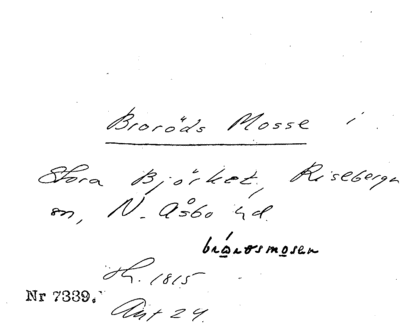 Broröds Mosse i
Stora Bjärket, Riseberga
sn, N. Åsbo hd.
sk. 1815
Nr 7339.
Ant 24.